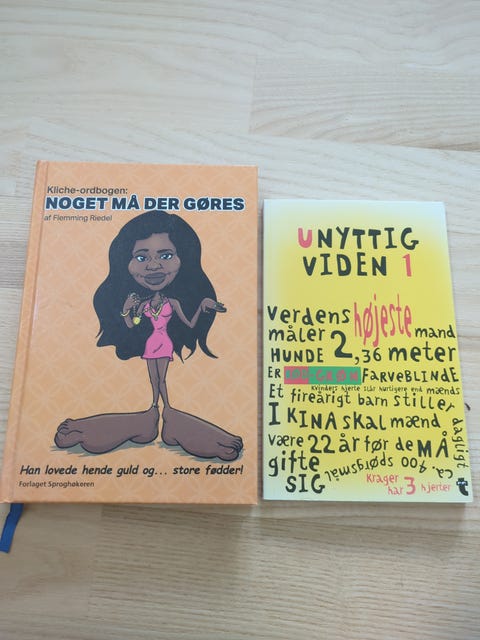 Kliche-ordbogen:
NOGET MÅ DER GØRES
af Flemming Riedel
Han lovede hende guld og... store fødder!
Forlaget Sproghøkeren
UNYTTIG
VIDEN 1
Verdens højeste mand
måler 2,36 meter
HUNDE
ER RØD-GRØN FARVEBLINDE
Kvinders hjerte slår hurtigere end mænds
Et fireårigt barn stiller
dagligt
ca. 400 spørgsmål
I KINA skal mænd
være 22 år før de MÅ
gifte
SIG
Krager
har 3 hjerter